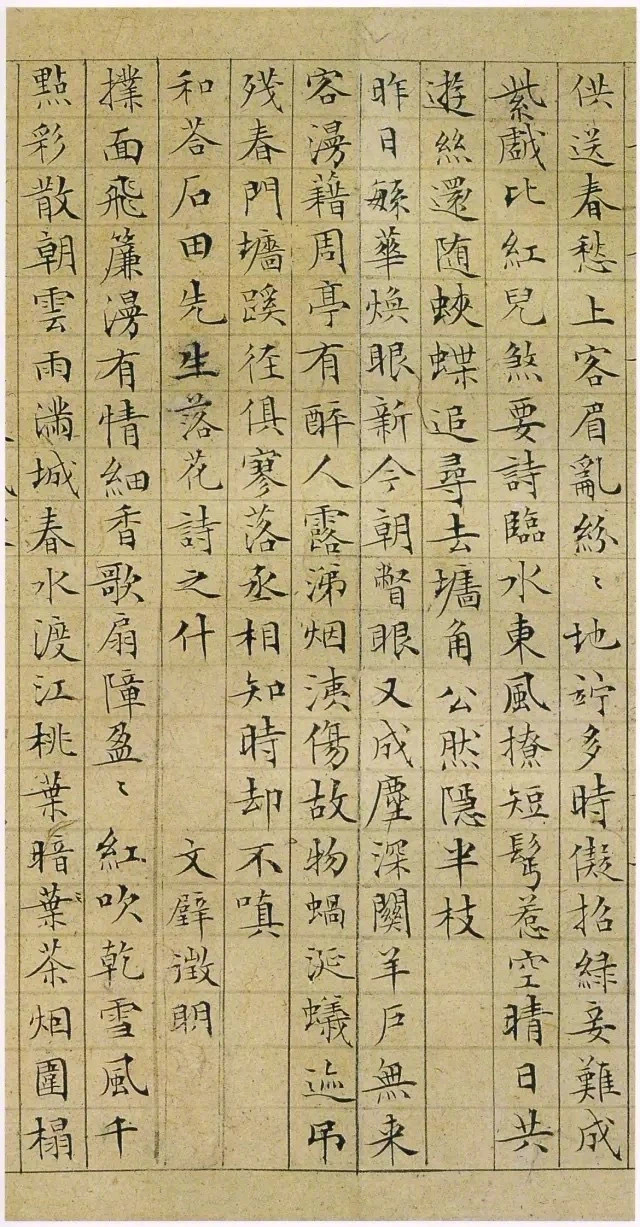 供送春愁上客眉亂紛〻地竚多時儗招綠妾難成
紫戲比紅兒煞要詩臨水東風撩短鬂惹空晴日共
遊絲還随蛺蝶追尋去墻角公然隱半枝
昨日緐華煥眼新今朝瞥眼又成塵深關羊戶無来
客漫藉周亭有醉人露涕烟洟傷故物蝸涎蟻迹吊
殘春門墻蹊徑俱寥落丞相知時却不嗔
和荅石田先生落花詩之什 文壁徵明
撲面飛簾漫有情細香歌扇障盈〻紅吹乾雪風千
點彩散朝雲雨滿城春水渡江桃葉暗葉茶烟圍榻